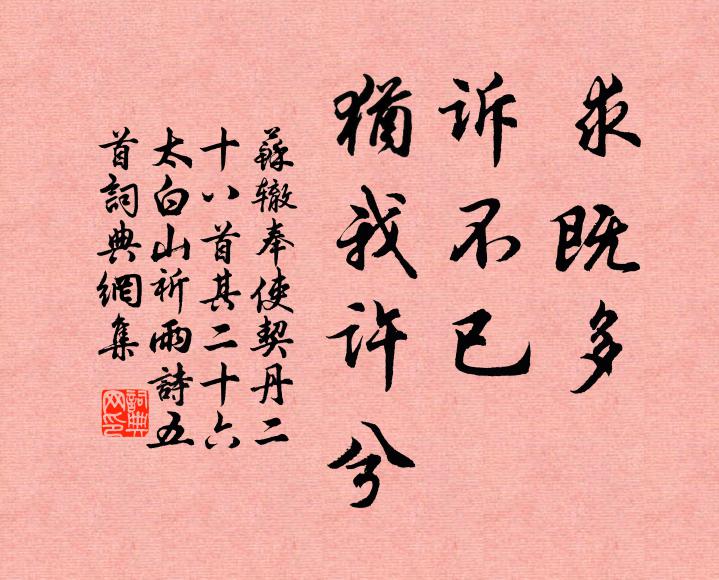 求既多
诉不已
犹我许兮
蘇辙奉使契丹二
十八首其二十六
太白山祈雨詩五
首詞典網集
詞典
网印